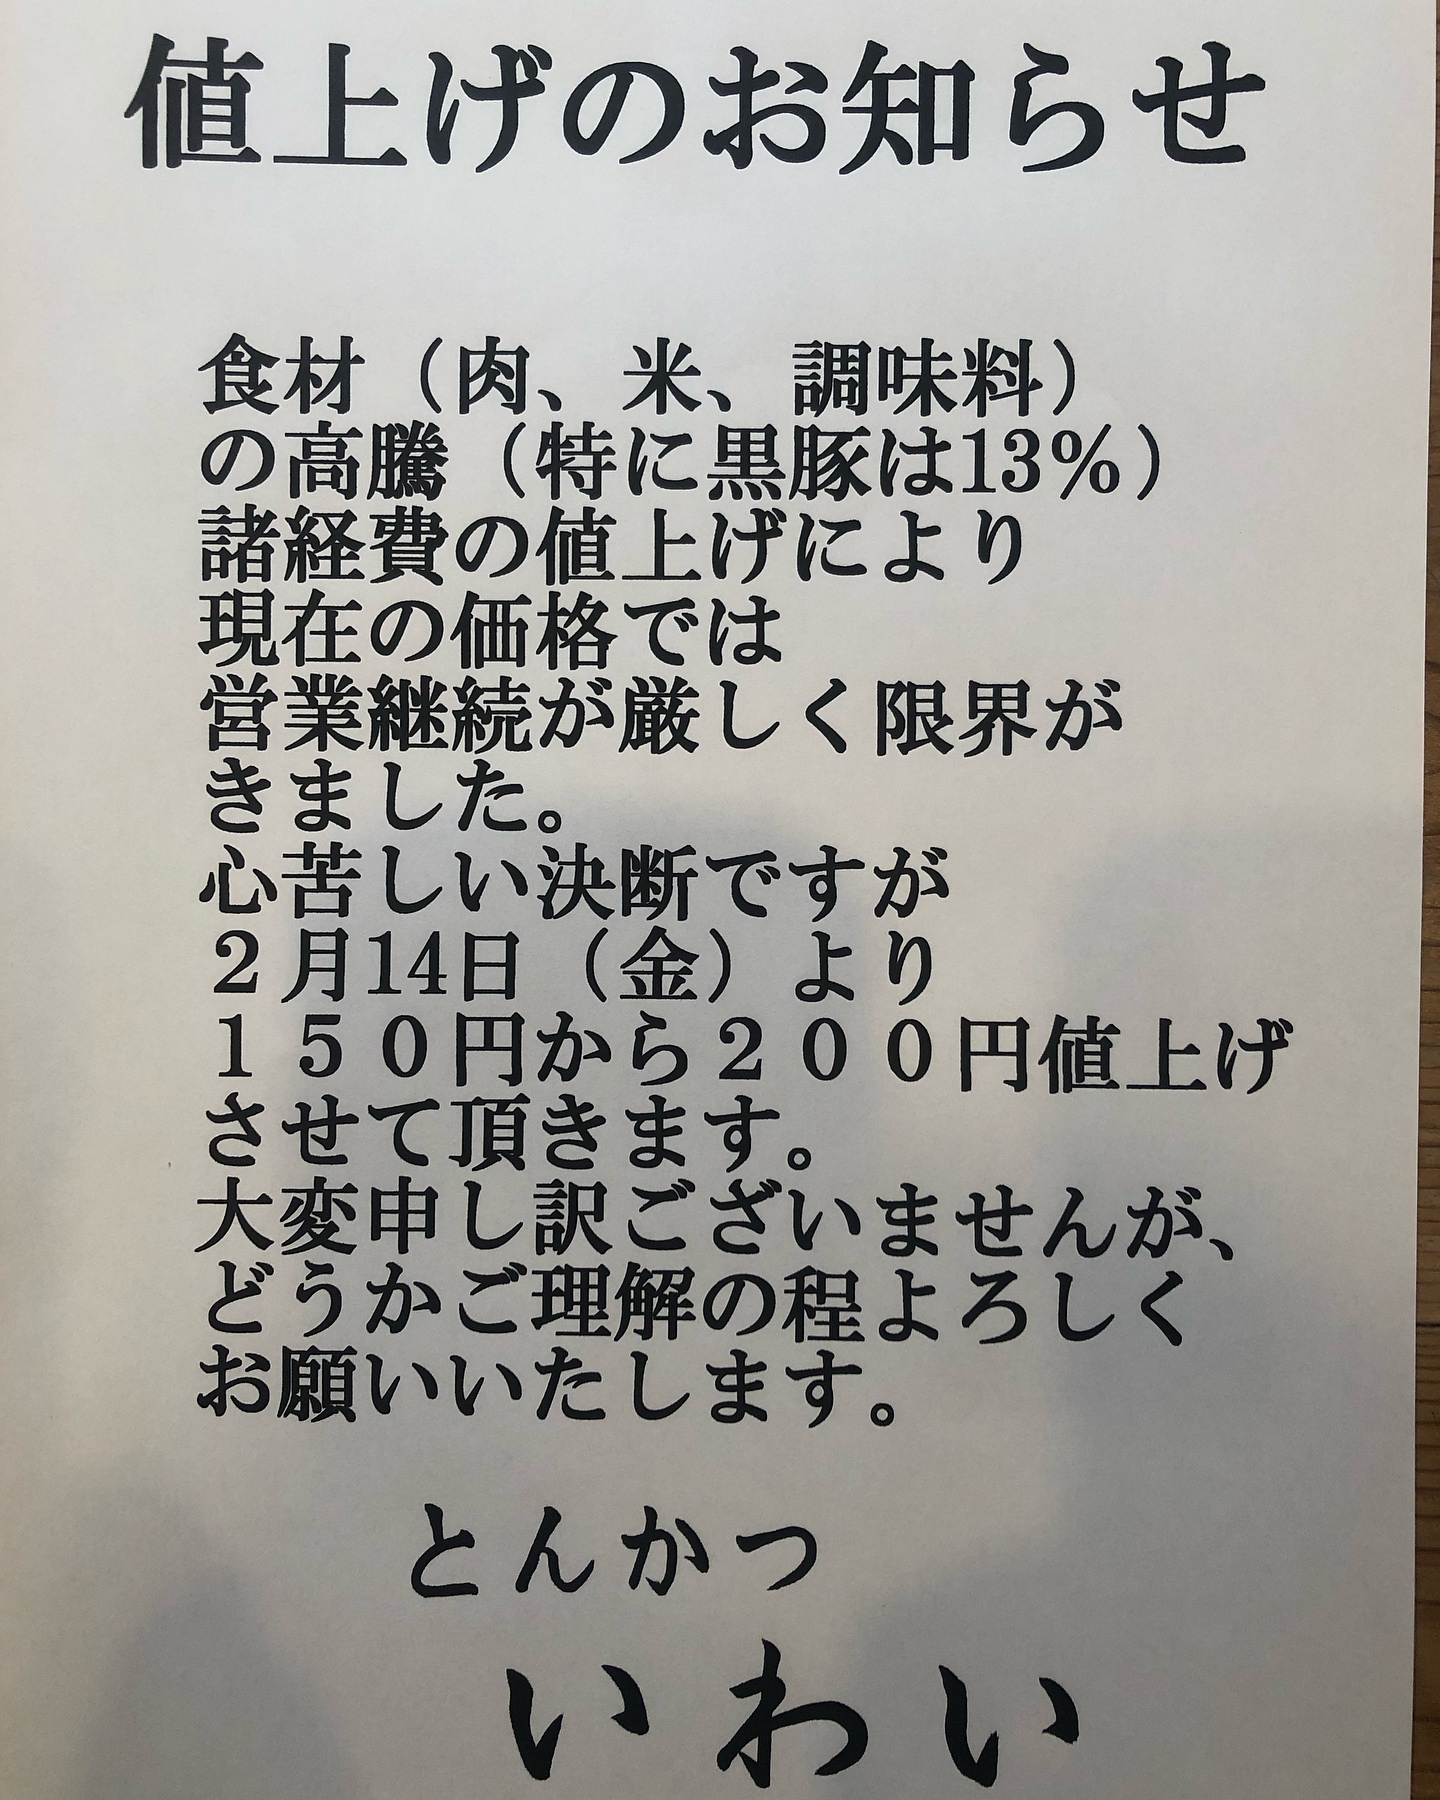 値上げのお知らせ
食材（肉、米、調味料）
の高騰（特に黒豚は13％）
諸経費の値上げにより
現在の価格では
営業継続が厳しく限界が
きました。
心苦しい決断ですが
２月14日（金）より
１５０円から２００円値上げ
させて頂きます。
大変申し訳ございませんが、
どうかご理解の程よろしく
お願いいたします。
とんかつ
いわい